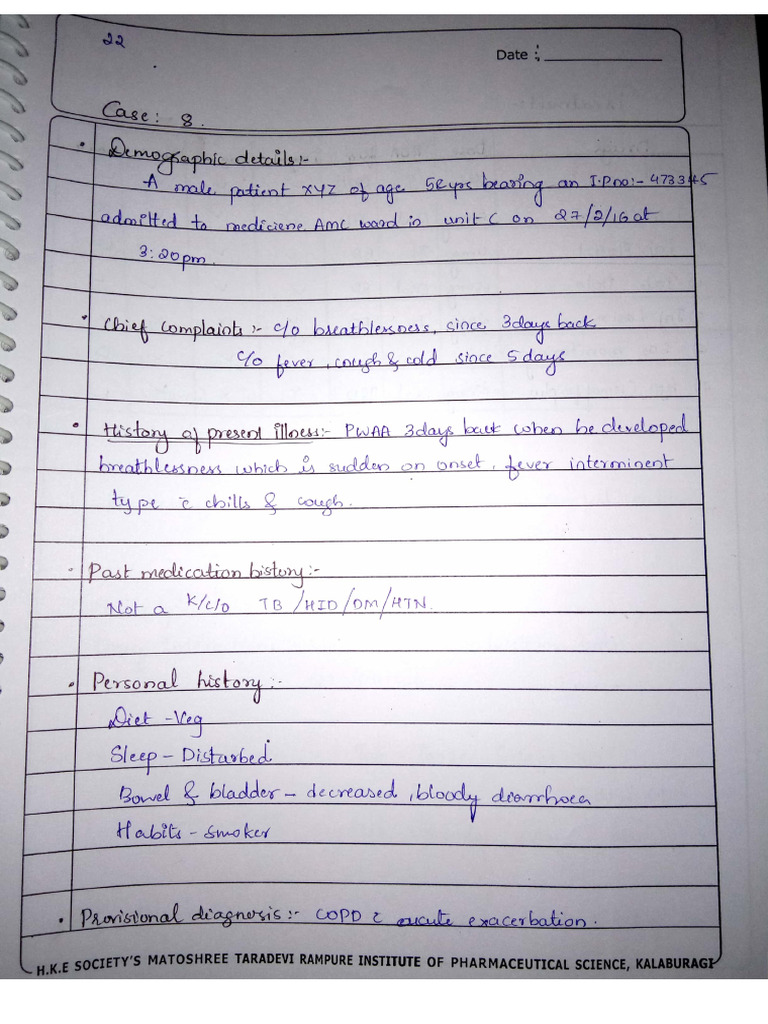 22
Date :
Case: 8.
• Demographic details:-
A male patient XYZ of age 52yrs bearing an I.P no:- 473345
admitted to mediciene AMC ward in unit C on 27/2/16 at
3:20pm.
• Chief complaints:- c/o breathlessness, since 3days back
c/o fever, cough & cold since 5 days
• History of present illness:- PWAA 3days back when he developed
breathlessness which is sudden on onset, fever interminent
type c chills & cough.
• Past medication history:-
Not a K/c/o TB/HID/DM/HTN.
• Personal history:-
Diet - Veg
Sleep - Disturbed
Bowel & bladder - decreased, bloody diarrhoea
Habits - smoker
• Provisional diagnosis:- COPD c acute exacerbation.
H.K.E SOCIETY'S MATOSHREE TARADEVI RAMPURE INSTITUTE OF PHARMACEUTICAL SCIENCE, KALABURAGI